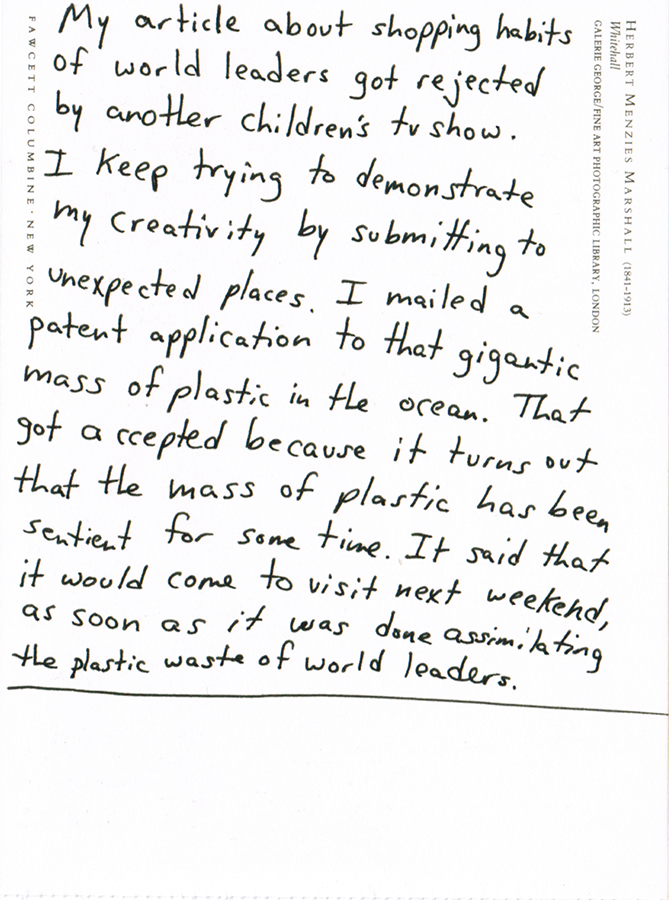 My article about shopping habits
of world leaders got rejected
by another children's tv show.
I keep trying to demonstrate
my creativity by submitting to
unexpected places. I mailed a
patent application to that gigantic
mass of plastic in the ocean. That
got accepted because it turns out
that the mass of plastic has been
sentient for some time. It said that
it would come to visit next weekend,
as soon as it was done assimilating
the plastic waste of world leaders.
FAWCETT COLUMBINE · NEW YORK
HERBERT MENZIES MARSHALL (1841-1913)
Whitehall
GALERIE GEORGE/FINE ART PHOTOGRAPHIC LIBRARY, LONDON